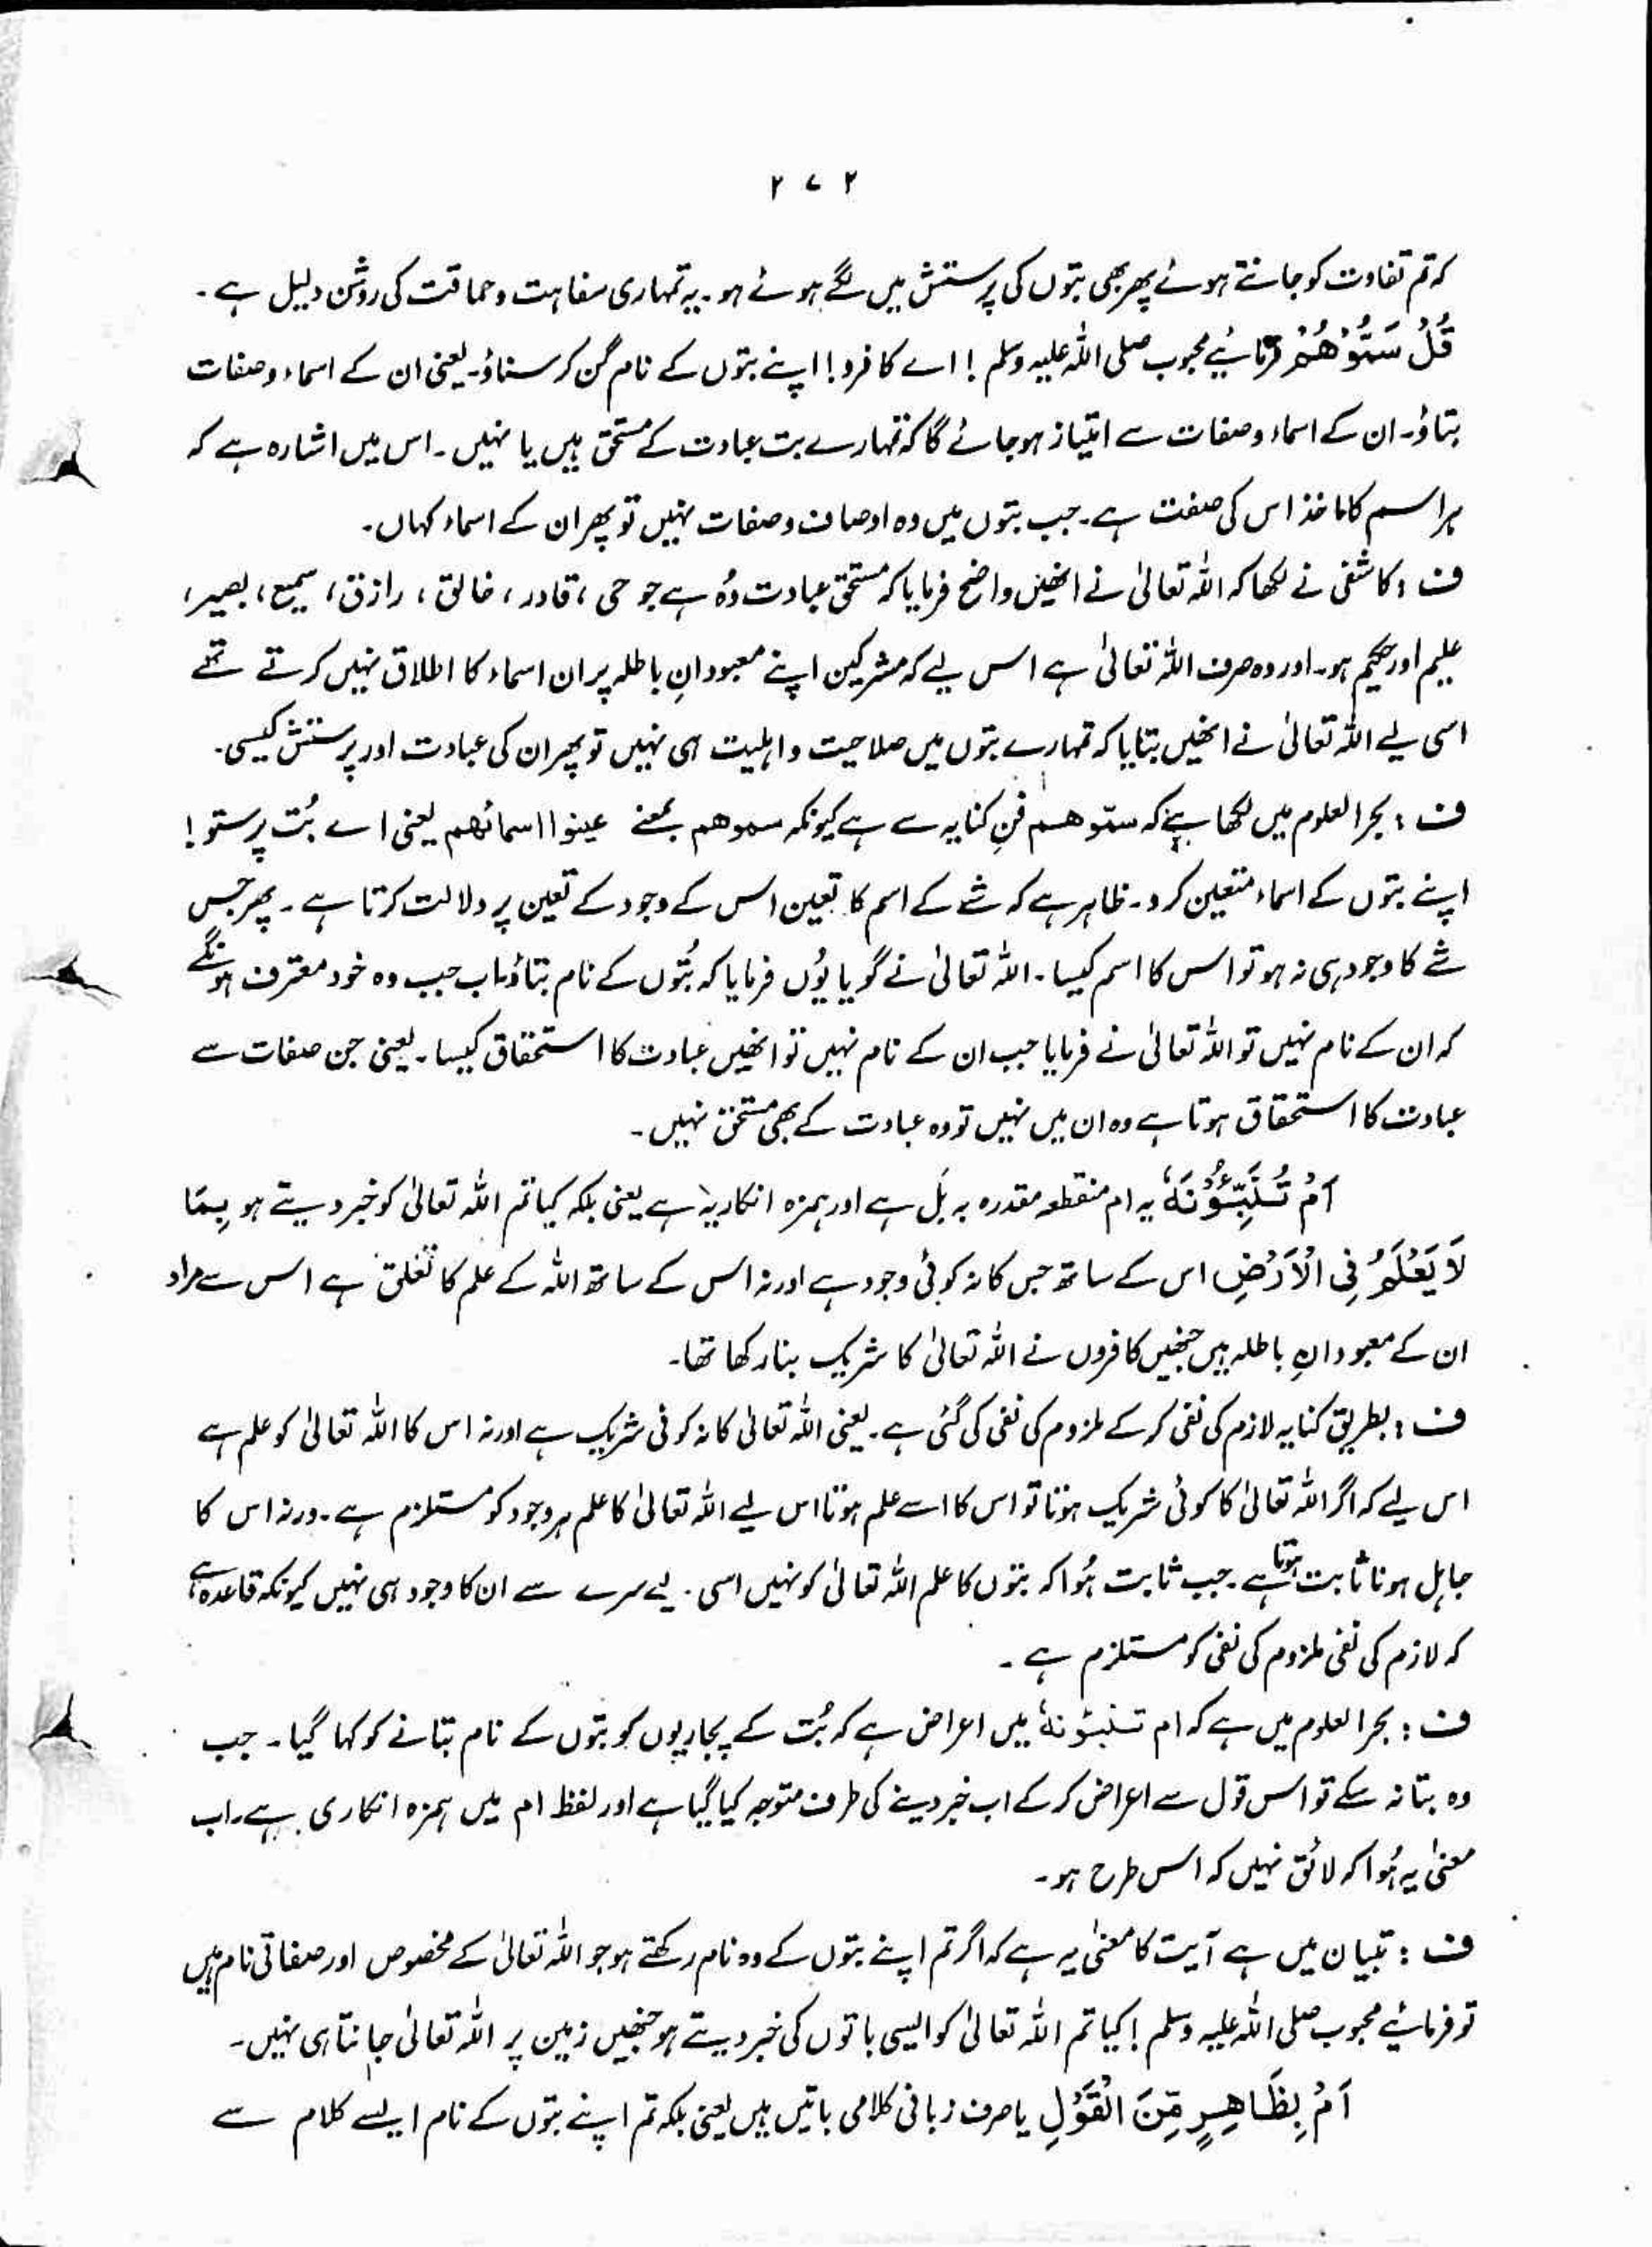 ۲۷۲
کہ تم تفاوت کو جانتے ہوئے پھر بھی بتوں کی پرستش میں لگے ہوئے ہو۔ یہ تمہاری سفاہت و حماقت کی روشن دلیل ہے۔
قُلْ سَمُّوْهُمْ فرمائیے محبوب صلی اللہ علیہ وسلم ! اے کافرو! اپنے بتوں کے نام گن کر سناؤ۔ یعنی ان کے اسماء و صفات
بتاؤ۔ ان کے اسماء و صفات سے امتیاز ہوجائے گا کہ تمہارے بت عبادت کے مستحق ہیں یا نہیں۔ اس میں اشارہ ہے کہ
ہر اسم کا ماخذ اس کی صفت ہے۔ جب بتوں میں وہ اوصاف و صفات نہیں تو پھر ان کے اسماء کہاں۔
ف : کاشفی نے لکھا کہ اللہ تعالیٰ نے انھیں واضح فرمایا کہ مستحق عبادت وُہ ہے جو حی ، قادر ، خالق ، رازق ، سمیع ، بصیر ،
علیم اور حکیم ہو۔ اور وہ صرف اللہ تعالیٰ ہے اس لیے کہ مشرکین اپنے معبودانِ باطلہ پر ان اسماء کا اطلاق نہیں کرتے تھے
اسی لیے اللہ تعالیٰ نے انھیں بتایا کہ تمہارے بتوں میں صلاحیت و اہلیت ہی نہیں تو پھر ان کی عبادت اور پرستش کیسی۔
ف : بحر العلوم میں لکھا ہے کہ سمّوهم فنِ کنایہ سے ہے کیونکہ سموهم بمعنے عینوا اسمائهم یعنی اے بُت پرستو !
اپنے بتوں کے اسماء متعین کرو۔ ظاہر ہے کہ شے کے اسم کا تعین اس کے وجود کے تعین پر دلالت کرتا ہے۔ پھر جس
شے کا وجود ہی نہ ہو تو اس کا اسم کیسا۔ اللہ تعالیٰ نے گویا یُوں فرمایا کہ بُتوں کے نام بتاؤ۔ اب جب وہ خود معترف ہونگے
کہ ان کے نام نہیں تو اللہ تعالیٰ نے فرمایا جب ان کے نام نہیں تو انھیں عبادت کا استحقاق کیسا۔ یعنی جن صفات سے
عبادت کا استحقاق ہوتا ہے وہ ان میں نہیں تو وہ عبادت کے بھی مستحق نہیں۔
اَمْ تُنَبِّئُوْنَهٗ یہ ام منقطعہ مقدرہ بہ بَل ہے اور ہمزہ انکاریہ ہے یعنی بلکہ کیا تم اللہ تعالیٰ کو خبر دیتے ہو بِمَا
لَا يَعْلَمُ فِى الْاَرْضِ اس کے ساتھ جس کا نہ کوئی وجود ہے اور نہ اس کے ساتھ اللہ کے علم کا تعلق ہے اس سے مراد
ان کے معبودانِ باطلہ ہیں جنھیں کافروں نے اللہ تعالیٰ کا شریک بنا رکھا تھا۔
ف : بطریق کنایہ لازم کی نفی کر کے ملزوم کی نفی کی گئی ہے۔ یعنی اللہ تعالیٰ کا نہ کوئی شریک ہے اور نہ اس کا اللہ تعالیٰ کو علم ہے
اس لیے کہ اگر اللہ تعالیٰ کا کوئی شریک ہوتا تو اس کا اسے علم ہوتا اس لیے اللہ تعالیٰ کا علم ہر وجود کو مستلزم ہے۔ ورنہ اس کا
جاہل ہونا ثابت ہوتا ہے۔ جب ثابت ہُوا کہ بتوں کا علم اللہ تعالیٰ کو نہیں اسی۔ لیے سرے سے ان کا وجود ہی نہیں کیونکہ قاعدہ ہے
کہ لازم کی نفی ملزوم کی نفی کو مستلزم ہے۔
ف : بحر العلوم میں ہے کہ ام تنبئونهٗ میں اعراض ہے کہ بُت کے پجاریوں کو بتوں کے نام بتانے کو کہا گیا۔ جب
وہ بتا نہ سکے تو اس قول سے اعراض کر کے اب خبر دینے کی طرف متوجہ کیا گیا ہے اور لفظ ام میں ہمزہ انکاری ہے۔ اب
معنیٰ یہ ہُوا کہ لائق نہیں کہ اس طرح ہو۔
ف : تبیان میں ہے آیت کا معنیٰ یہ ہے کہ اگر تم اپنے بتوں کے وہ نام رکھتے ہو جو اللہ تعالیٰ کے مخصوص اور صفاتی نام ہیں
تو فرمائیے محبوب صلی اللہ علیہ وسلم ! کیا تم اللہ تعالیٰ کو ایسی باتوں کی خبر دیتے ہو جنھیں زمین پر اللہ تعالیٰ جانتا ہی نہیں۔
اَمْ بِظَاهِرٍ مِّنَ الْقَوْلِ یا صرف زبانی کلامی باتیں ہیں یعنی بلکہ تم اپنے بتوں کے نام ایسے کلام سے